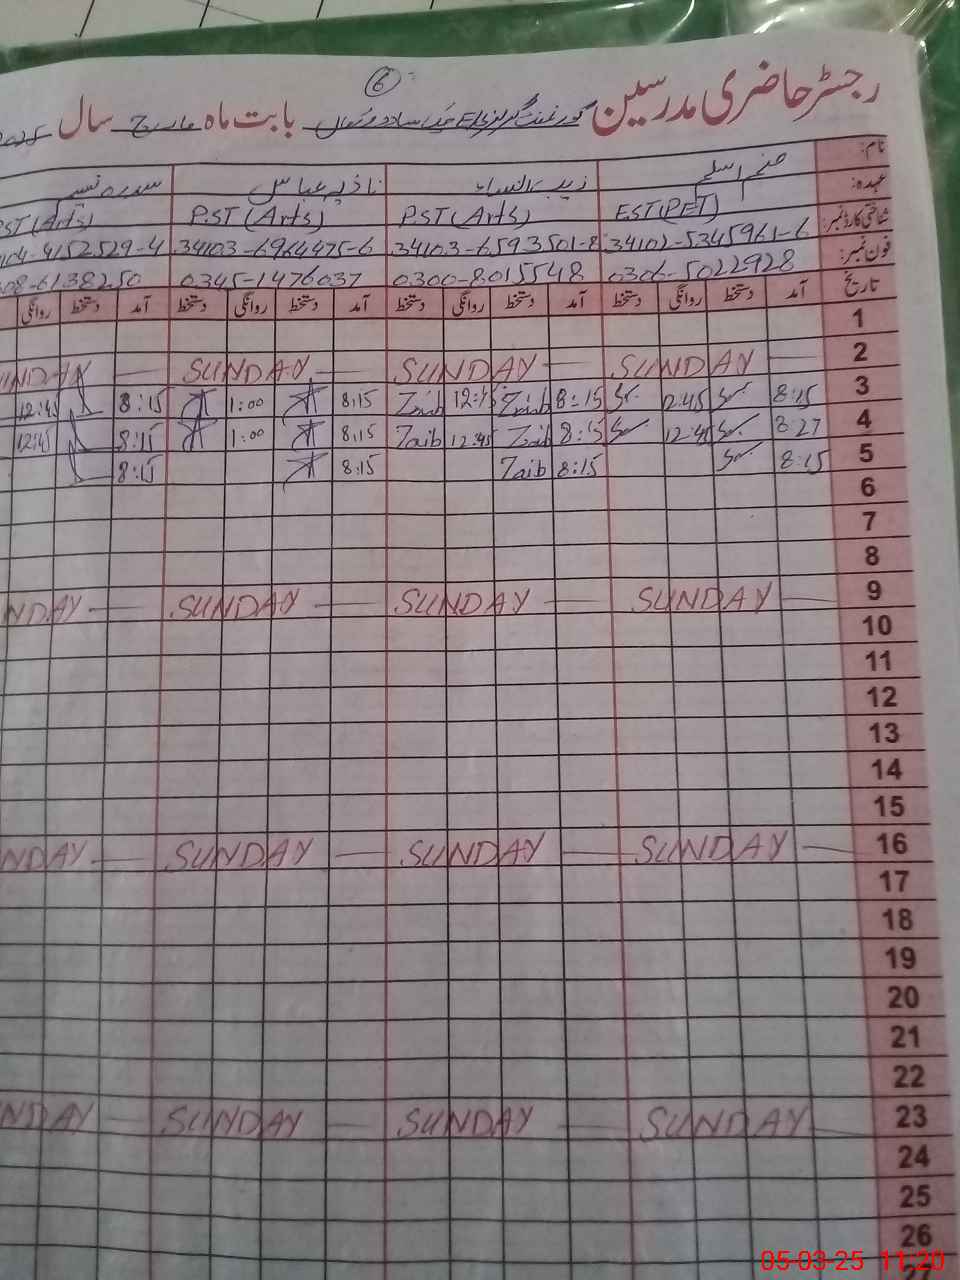 6
رجسٹر حاضری مدرسین گورنمنٹ گرلز بابت ماہ مارچ سال 2025
نام: صنم اسلم زیب النساء نازیہ عباس سدرہ
عہدہ: EST(PET) PST(Arts) PST(Arts) PST(Arts)
شناختی کارڈ نمبر: 34102-5345961-6 34103-6593501-8 34103-6964475-6 104-4152529-4
فون نمبر: 0306-5022928 0300-8015548 0345-1476037 08-6138250
تاریخ آمد دستخط روانگی دستخط آمد دستخط روانگی دستخط آمد دستخط روانگی دستخط آمد دستخط روانگی
1
2 SUNDAY SUNDAY SUNDAY UNDAY
3 8:15 12:45 8:15 Zaib 12:45 Zaib 8:15 1:00 8:15 12:45
4 8:27 12:45 8:15 Zaib 12:45 Zaib 8:15 1:00 8:15 12:45
5 8:15 8:15 Zaib 8:15 8:15
6
7
8
9 SUNDAY SUNDAY SUNDAY NDAY
10
11
12
13
14
15
16 SUNDAY SUNDAY SUNDAY NDAY
17
18
19
20
21
22
23 SUNDAY SUNDAY SUNDAY NDAY
24
25
26
05-03-25 11:20